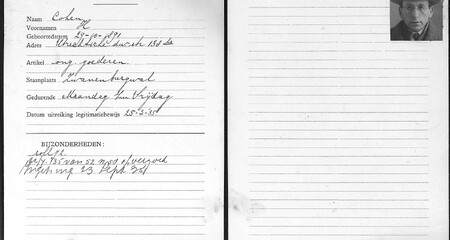 Naam Cohen
Voornamen H
Geboortedatum 29-10-'91
Adres Utrechtsche dwarsstr 138
Artikel ong. goederen.
Standplaats Zwanenburgwal
Gedurende Maandag t/m Vrijdag
Datum uitreiking legitimatiebewijs 25-3-'45
BIJZONDERHEDEN:
van 52
23 Sept.